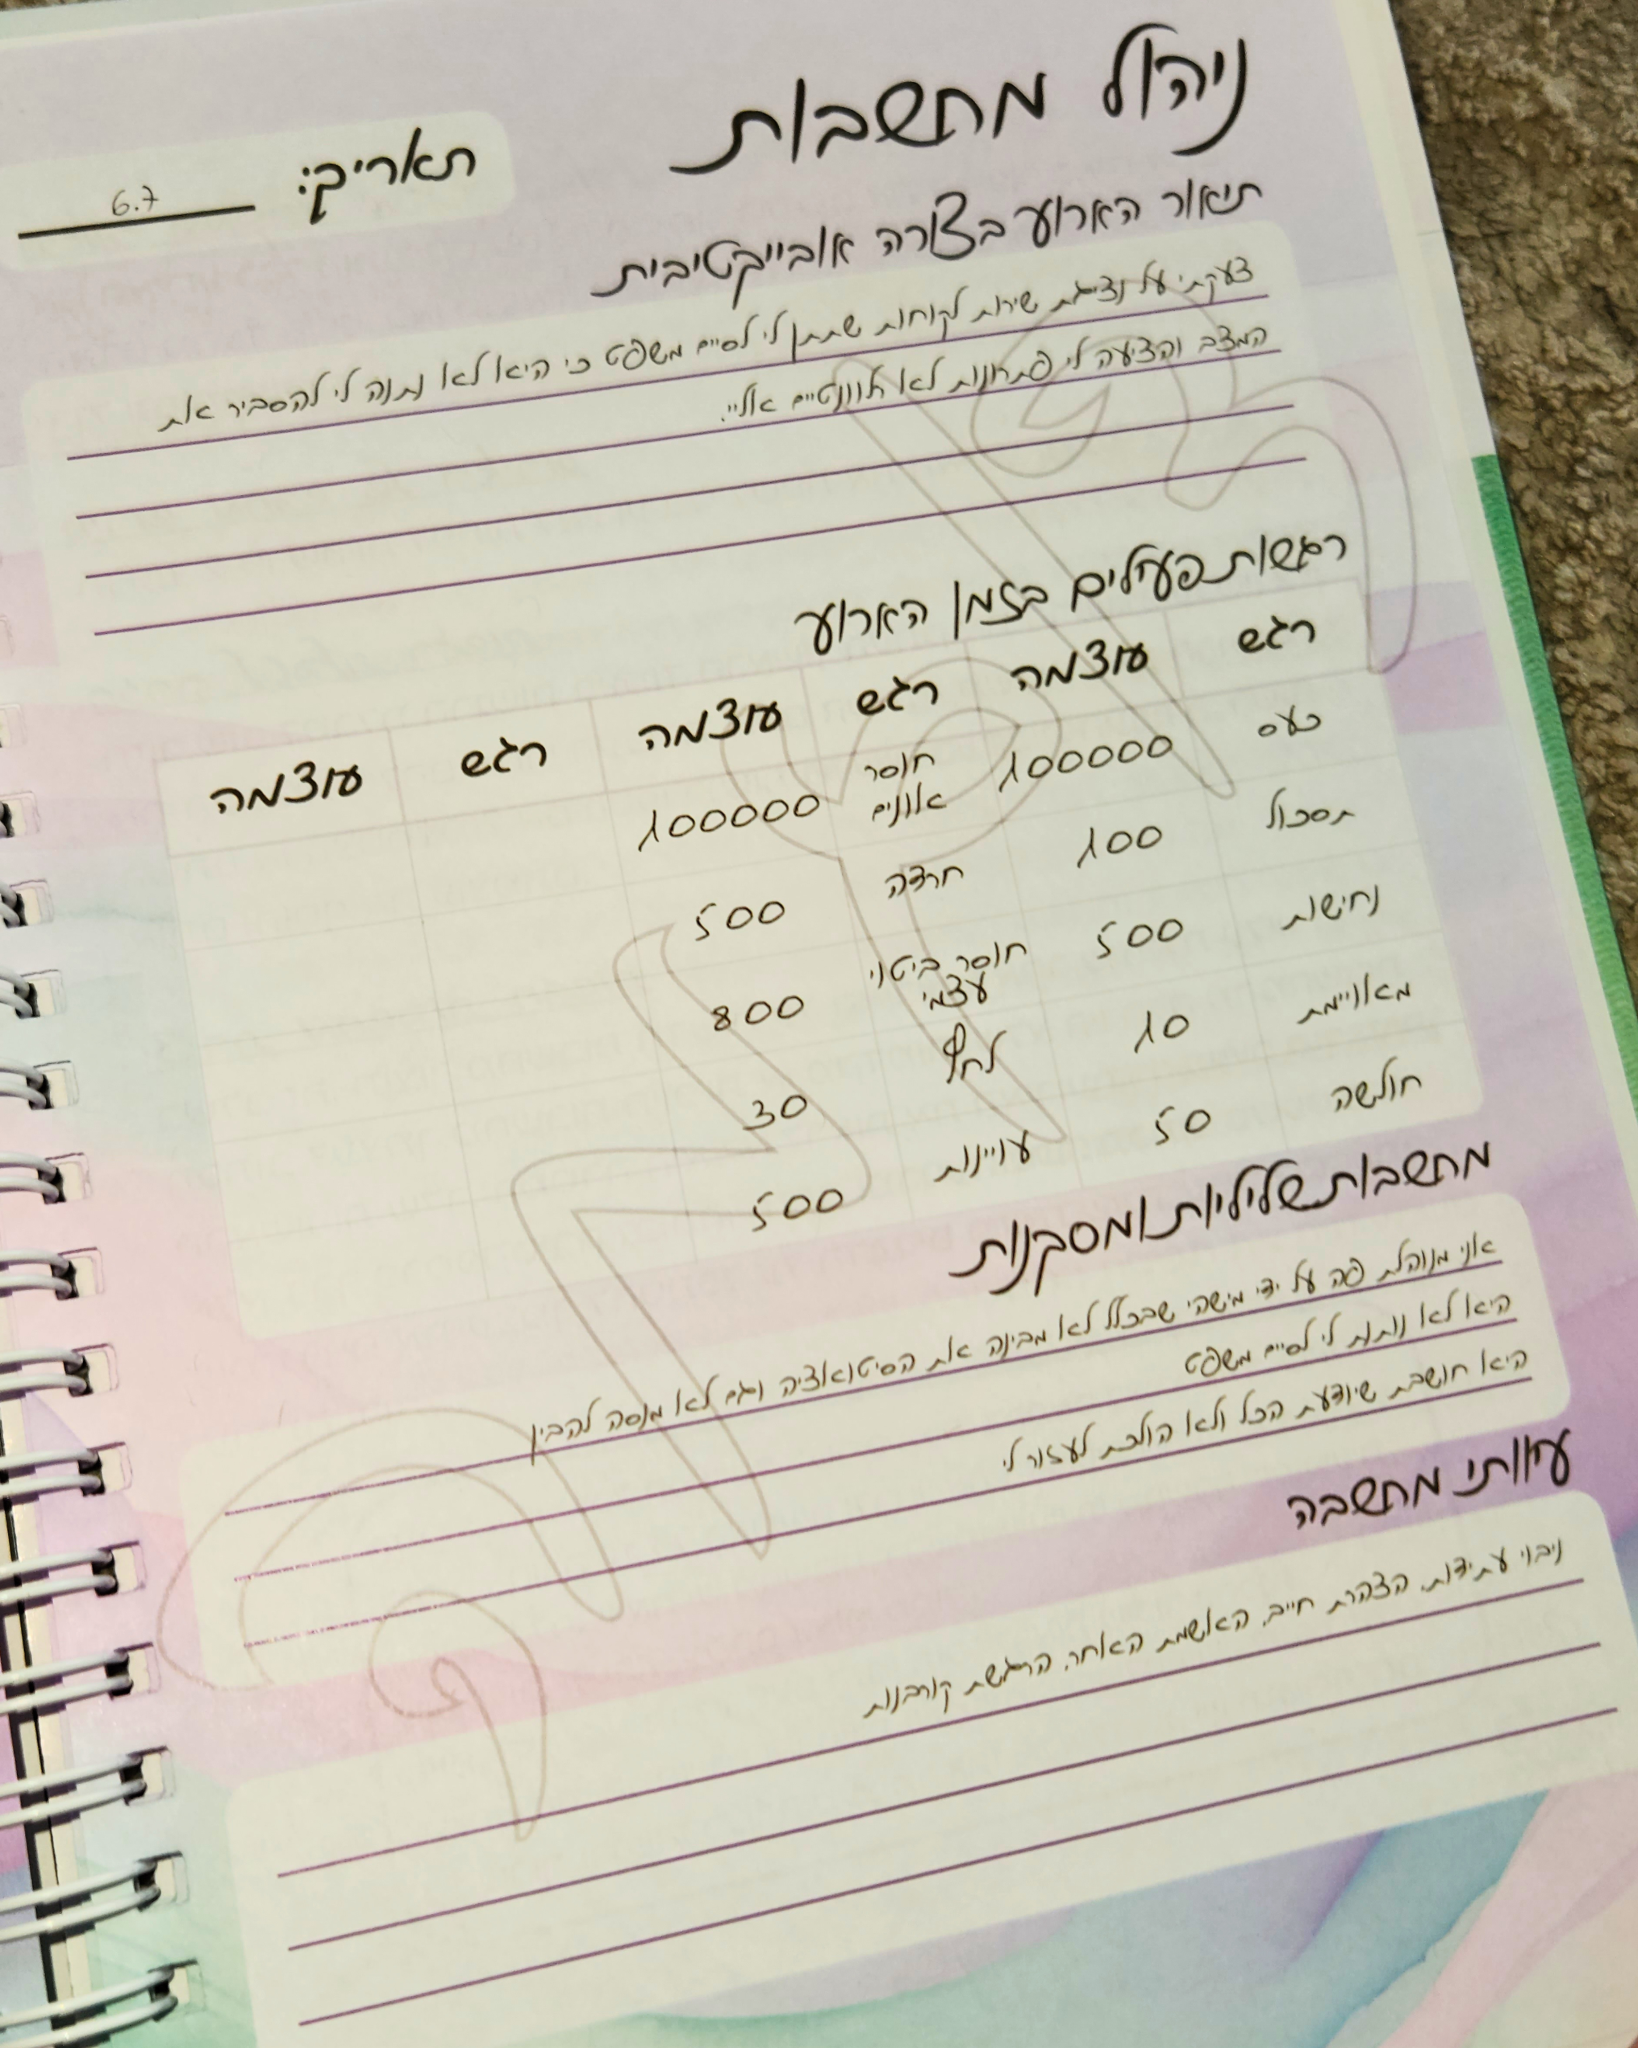 ניהול מחשבות
תאריך: 6.7
תיאור הארוע בצורה אובייקטיבית
צעקתי על נציגת שירות לקוחות שתתן לי לסיים משפט כי היא לא נתנה לי להסביר את
המצב והציעה לי פתרונות לא רלוונטיים אליי.
רגשות פעילים בזמן הארוע
רגש עוצמה רגש עוצמה רגש עוצמה
כעס 100000 חוסר אונים 100000
תסכול 100 חרדה 500
נחישות 500 חוסר ביטוי עצמי 800
מאויימת 10 לחץ 30
חולשה 50 עויינות 500
מחשבות שליליות ומסקנות
אני מנוהלת פה על ידי מישהי שבכלל לא מבינה את הסיטואציה וגם לא מנסה להבין
היא לא נותנת לי לסיים משפט
היא חושבת שיודעת הכל ולא הולכת לעזור לי
עיוותי מחשבה
ניבוי עתידות, הצהרת חייב, האשמת האחר, הרגשת קורבנות